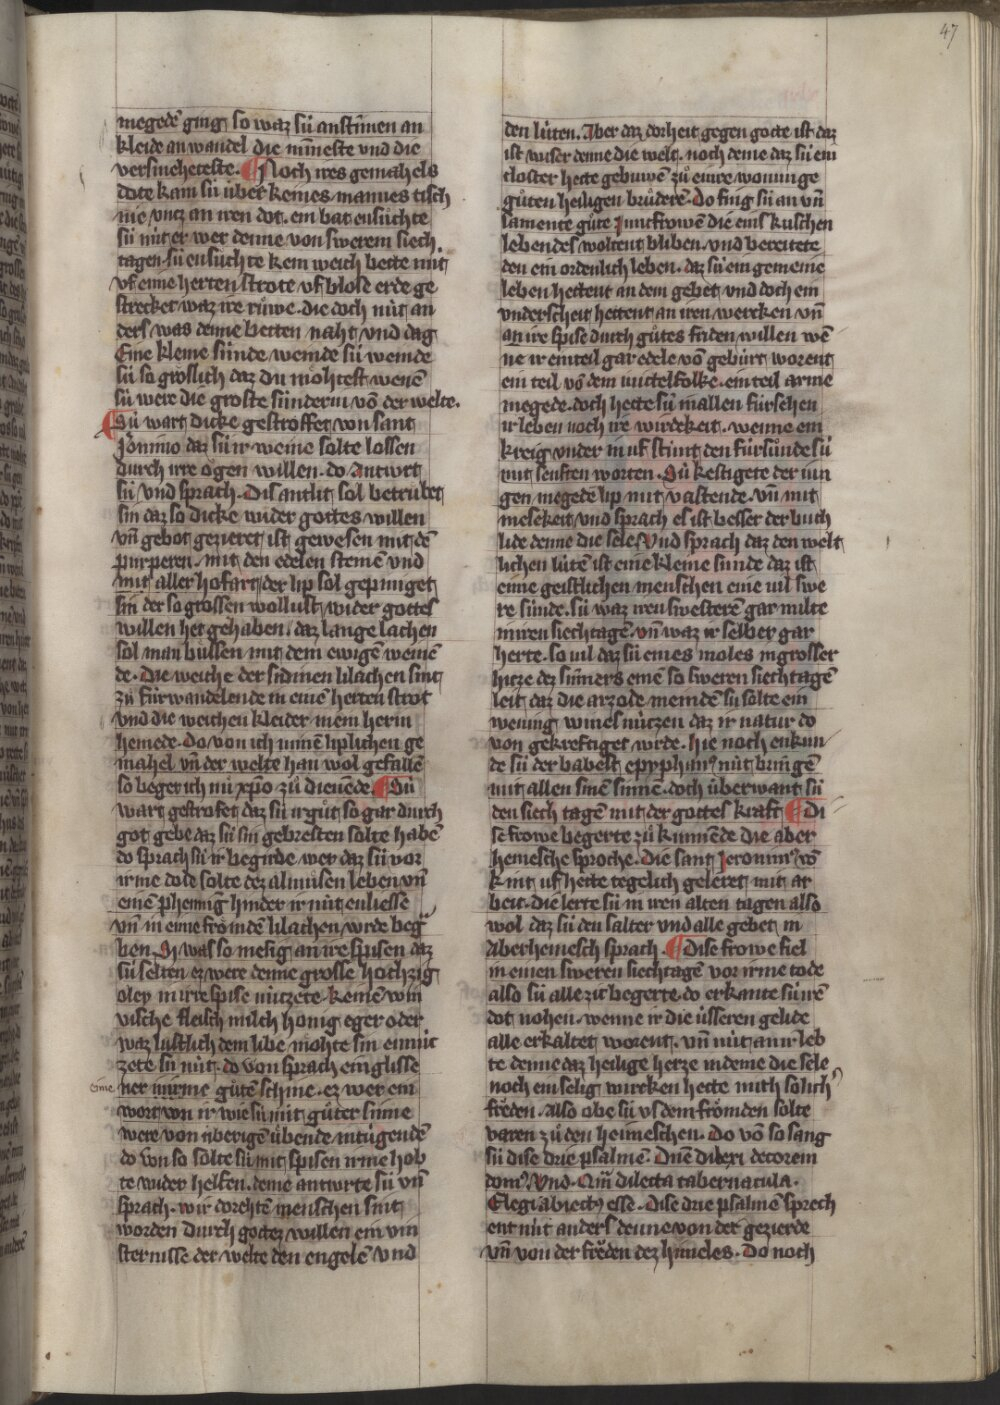 47
megedē ging so waz sú anstimen an
kleide an wandel die mīneste vnd die
versmeheteste. Noch ires gemahels
dote kam sú úber keines mannes tisch
nie vntz an iren dot. ein bat ensúchte
sú nút er wer denne von swerem siech
tagen. sú ensúchte kein weich bette mit
vf eine herten strote vf blose erde ge
strecket waz ire rúwe. die doch nút an
ders was denne betten naht vnd dag
Eine kleine súnde weinde sú weinde
sú so groslich daz du möhtest wenē
sú were die groste súnderin vō der welte.
Sú wart dicke gestroffet von sant
Jōnimo daz sú ir weine solte lossen
durch irre ögen willen. do antwrt
sú vnd sprach. Dis antlit sol betrúbet
sin daz so dicke wider gottes willen
vn̄ gebot gezieret ist gewesen mit dē
purperen. mit den edelen steinē vnd
mit aller hofart der lip sol gepiniget
sin der so grossen wollust wider gottes
willen het gehaben. daz lange lachen
sol man bússen mit dem ewigē weinē
de. Die weiche der sidinen lilachen sint
zú fúrwandelende in einē herten strot
vnd die weichen kleider in ein herin
hemede. Do von ich mīnē liplichen ge
mahel vn̄ der welte han wol gefallē
so beger ich nú xp̄o zú dienēde. Sú
wart gestrofet daz sú ir gút so gar durch
got gebe daz sú sin gebresten solte habē
do sprach sú ir begirde wer daz sú vor
irme dode solte dez almusen leben vn̄
einē phennig hinder ir nút enliesse
vn̄ in eine frömdē lilachen wrde beg
ben. Si was so mesig an ire spisen daz
sú selten ez were denne grosse hochzig
oley in irre spise nútzete. keinē win
vische fleisch milch honig eger oder
waz lustlich dem libe mohte sin ennút
zete sú nút. do von sprach ein glisse
eine
ner in irme gúte schine. ez wer ein
wort von ir wie sú nút gúter sinne
were von úberigē úbende in túgendē
do von so solte sú mit spisen irme hob
te wider helfen. deme antwrte sú vn̄
sprach. wir dorehtē menschen sint
worden durch gottez willen ein vin
sternisse der welte den engelē vnd
den lúten. Aber daz dorheit gegen gotte ist daz
ist wiser denne die welt. noch deme daz sú ein
closter hette gebuwē zú einre wonunge
gúten heiligen brúderē. Do fing sú an vn̄
samente gúte Jūncfrowē die eins kúschen
lebendes woltent bliben. vnd bereitete
den ein ordenlich leben. daz sú ein gemeine
leben hettent an dem gebet vnd doch ein
vnderscheit hettent an iren wercken vn̄
an ire spise durch gútes friden willen wē
ne ir ein teil gar edele vō gebúrt worent
ein teil vō dem mittelfolke. ein teil arme
megede. doch hette sú in allen fúrsehen
ir leben noch ire wirdekeit. wenne ein
kreig vnder in uf stúnt den fúrsúnde sú
mit senften worten. Sú kestigete der iun
gen megedē lip mit vastende. vn̄ mit
mesekeit vnd sprach es ist besser der buch
lide denne die sele. Vnd sprach daz den welt
lichen lútē ist eine kleine súnde daz ist
eime geistlichen menschen eine vil swe
re súnde. sú waz iren swesterē gar milte
in iren siechtagē. vn̄ waz ir selber gar
herte. so vil daz sú eines moles in grosser
hitze dez súmers einē so sweren siechtagē
leit daz die arzode meindē sú solte ein
wening wines nútzen daz ir natur do
von gekreftiget wrde. hie noch enkun
de sú der babest epyphan⁹ nút bringē
mit allen sinē sinnē. doch úberwant sú
den siechtagē mit der gottes kraft. Di
se frowe begerte zú kunnēde die aber
hemesche sproche. Die sant Jeronim⁹ vō
kint uf hette tegelich geleret mit ar
beit. die lerte sú in iren alten tagen also
wol daz sú den salter vnd alle gebet in
aberhemesch sprach. Dise frowe fiel
in einen sweren siechtagē vor irme tode
also sú alle zit begerte. do erkante sú irē
dot nohen. wenne ir die ússeren gelide
alle erkaltet worent. vn̄ nút an ir leb
te denne daz heilige herze in deme die sele
noch ein selig wircken hette mith solich
fröden. Also obe sú vs dem frömden solte
varen zú den heimeschen. Do vō so sang
sú dise drie psalmē. Dn̄e dilexi decorem
dom⁹. Vnd. Qm̄ dilecta tabernacula.
Elegi abiectꝰ esse. Dise drie psalmē sprech
ent nút anders denne von der gezierde
vn̄ von der fröden dez himeles. Do noch